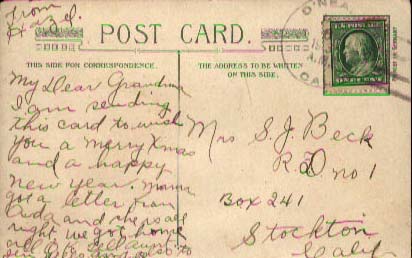 from
Hazel.
POST CARD.
THIS SIDE FOR CORRESPONDENCE.
THE ADDRESS TO BE WRITTEN
ON THIS SIDE.
O'NEA
CA
A.M.
ONE CENT
My Dear Grandma
I am sending
this card to wish
you a merry Xmas
and a happy
new year. Mama
got a letter from
and she is all
right. we got home
all O.K. tell aunt
to
Mrs S. J. Beck
R D no 1
Box 241
Stockton
Calif